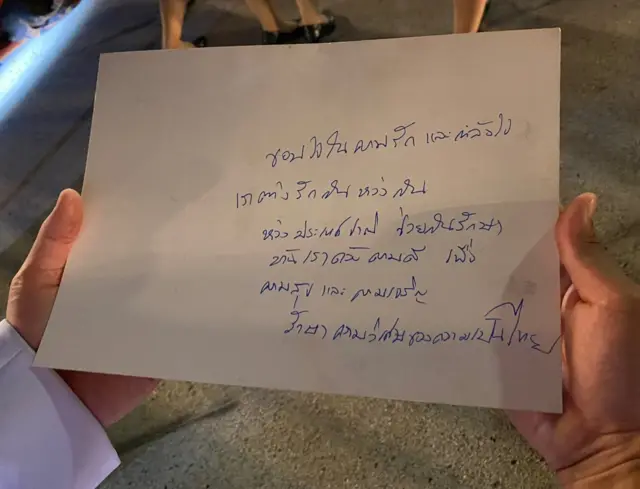 ขอบใจในความรัก และกำลังใจ
เราต่างรักกัน หวงกัน
หวงประเทศชาติ ช่วยกันรักษา
บ้านเราด้วยความดี เพื่อ
ความสุข และ ความเจริญ
รักษา ความวิเศษของความเป็นไทย